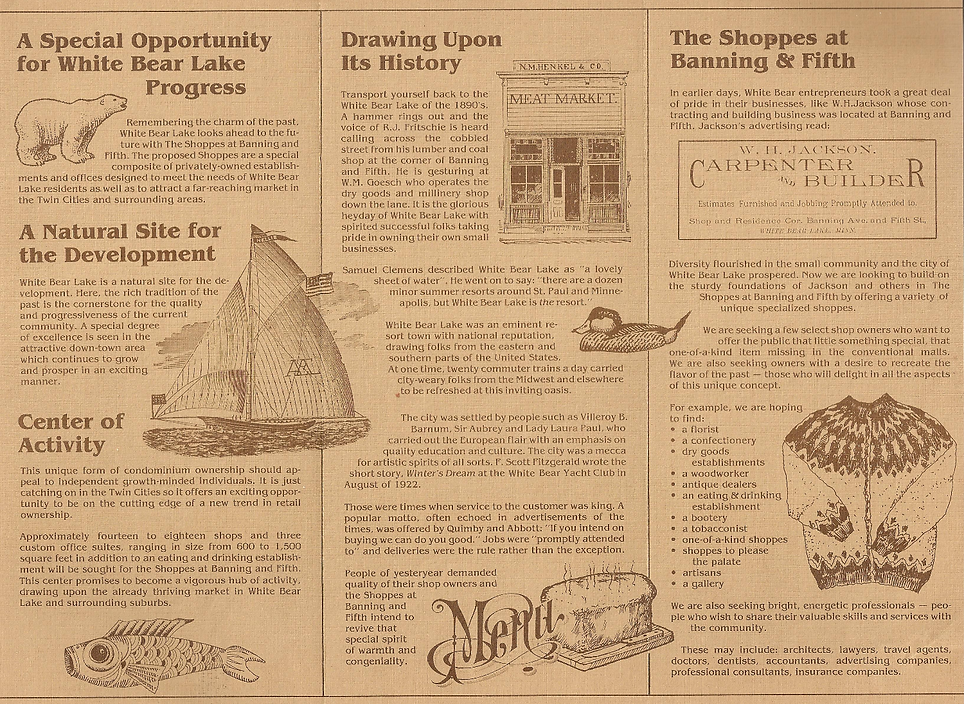 A Special Opportunity
for White Bear Lake
Progress
Remembering the charm of the past,
White Bear Lake looks ahead to the fu-
ture with The Shoppes at Banning and
Fifth. The proposed Shoppes are a special
composite of privately-owned establish-
ments and offices designed to meet the needs of White Bear
Lake residents as well as to attract a far-reaching market in
the Twin Cities and surrounding areas.
A Natural Site for
the Development
White Bear Lake is a natural site for the de-
velopment. Here, the rich tradition of the
past is the cornerstone for the quality
and progressiveness of the current
community. A special degree
of excellence is seen in the
attractive down-town area
which continues to grow
and prosper in an exciting
manner.
Center of
Activity
This unique form of condominium ownership should ap-
peal to independent growth-minded individuals. It is just
catching on in the Twin Cities so it offers an exciting oppor-
tunity to be on the cutting edge of a new trend in retail
ownership.
Approximately fourteen to eighteen shops and three
custom office suites, ranging in size from 600 to 1,500
square feet in addition to an eating and drinking establish-
ment will be sought for the Shoppes at Banning and Fifth.
This center promises to become a vigorous hub of activity,
drawing upon the already thriving market in White Bear
Lake and surrounding suburbs.
Drawing Upon
Its History
Transport yourself back to the
White Bear Lake of the 1890's.
A hammer rings out and the
voice of R.J. Fritschie is heard
calling across the cobbled
street from his lumber and coal
shop at the corner of Banning
and Fifth. He is gesturing at
W.M. Goesch who operates the
dry goods and millinery shop
down the lane. It is the glorious
heyday of White Bear Lake with
spirited successful folks taking
pride in owning their own small
businesses.
N.M. HENKEL & CO.
MEAT MARKET.
Samuel Clemens described White Bear Lake as "a lovely
sheet of water". He went on to say: "there are a dozen
minor summer resorts around St. Paul and Minne-
apolis, but White Bear Lake is the resort."
White Bear Lake was an eminent re-
sort town with national reputation,
drawing folks from the eastern and
southern parts of the United States.
At one time, twenty commuter trains a day carried
city-weary folks from the Midwest and elsewhere
to be refreshed at this inviting oasis.
The city was settled by people such as Villeroy B.
Barnum, Sir Aubrey and Lady Laura Paul, who
carried out the European flair with an emphasis on
quality education and culture. The city was a mecca
for artistic spirits of all sorts. F. Scott Fitzgerald wrote the
short story, Winter's Dream at the White Bear Yacht Club in
August of 1922.
Those were times when service to the customer was king. A
popular motto, often echoed in advertisements of the
times, was offered by Quimby and Abbott: "If you intend on
buying we can do you good." Jobs were "promptly attended
to" and deliveries were the rule rather than the exception.
People of yesteryear demanded
quality of their shop owners and
the Shoppes at
Banning and
Fifth intend to
revive that
special spirit
of warmth and
congeniality.
Menu
The Shoppes at
Banning & Fifth
In earlier days, White Bear entrepreneurs took a great deal
of pride in their businesses, like W.H.Jackson whose con-
tracting and building business was located at Banning and
Fifth. Jackson's advertising read:
W. H. JACKSON.
CARPENTER
AND BUILDER
Estimates Furnished and Jobbing Promptly Attended to.
Shop and Residence Cor. Banning Ave. and Fifth St.,
WHITE BEAR LAKE, MINN.
Diversity flourished in the small community and the city of
White Bear Lake prospered. Now we are looking to build on
the sturdy foundations of Jackson and others in The
Shoppes at Banning and Fifth by offering a variety of
unique specialized shoppes.
We are seeking a few select shop owners who want to
offer the public that little something special, that
one-of-a-kind item missing in the conventional malls.
We are also seeking owners with a desire to recreate the
flavor of the past — those who will delight in all the aspects
of this unique concept.
For example, we are hoping
to find:
• a florist
• a confectionery
• dry goods
establishments
• a woodworker
• antique dealers
• an eating & drinking
establishment
• a bootery
• a tobacconist
• one-of-a-kind shoppes
• shoppes to please
the palate
• artisans
• a gallery
We are also seeking bright, energetic professionals — peo-
ple who wish to share their valuable skills and services with
the community.
These may include: architects, lawyers, travel agents,
doctors, dentists, accountants, advertising companies,
professional consultants, insurance companies.